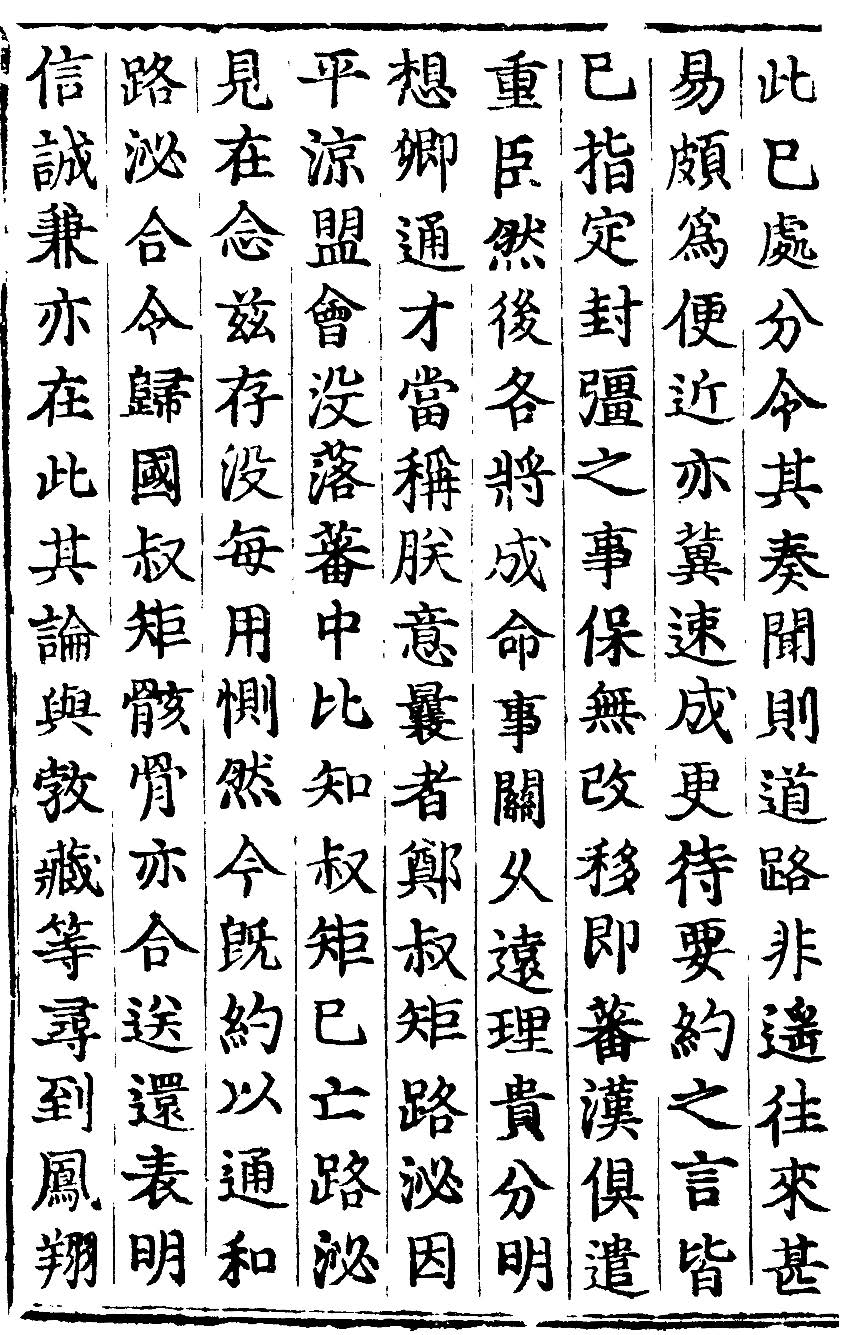 此已處分令其奏聞則道路非遥往來甚
易頗爲便近亦冀速成更待要約之言皆
已指定封疆之事保無改移即蕃漢俱遣
重臣然後各將成命事關久遠理貴分明
想卿通才當稱朕意曩者鄭叔矩路泌因
平涼盟會没落蕃中比知叔矩已亡路泌
見在念兹存没每用惻然今旣約以通和
路泌合令歸國叔矩骸骨亦合送還表明
信誠兼亦在此其論與敦藏等尋到鳳翔